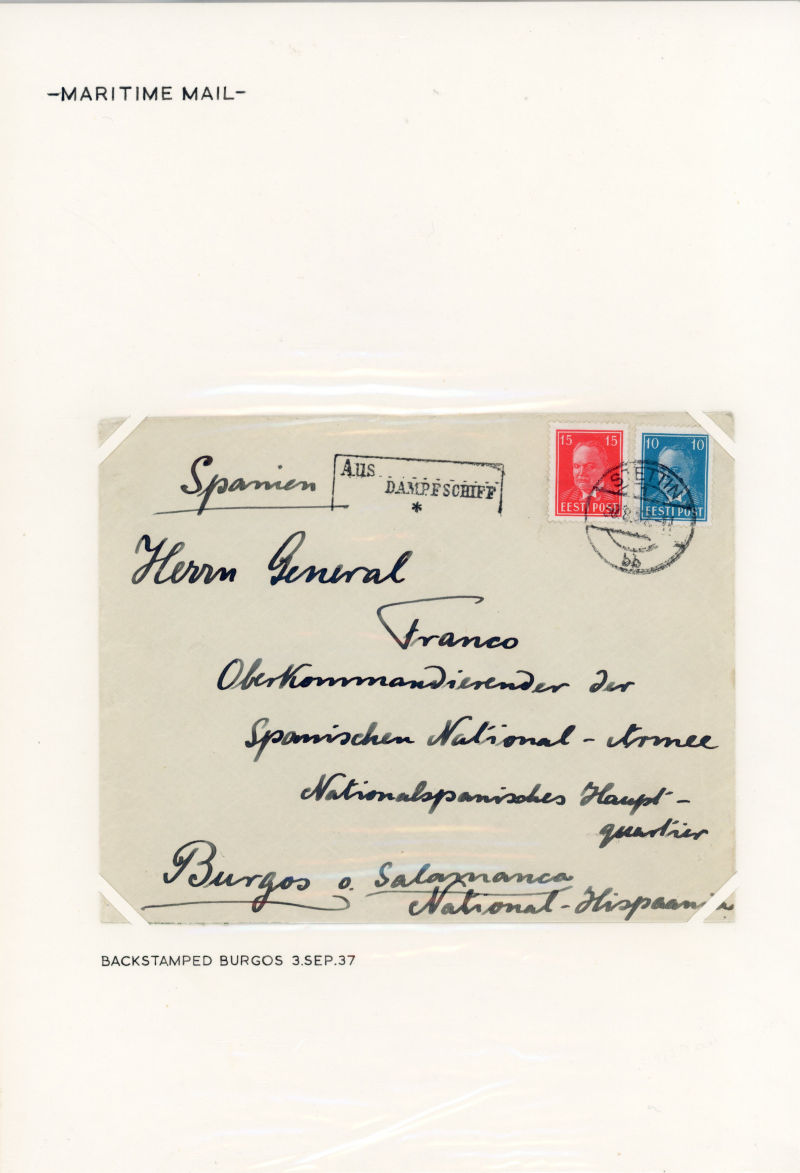 -MARITIME MAIL-
15 15
EESTI POST
10 10
EESTI POST
STETTIN
bb
Spanien
Aus
DAMPFSCHIFF
*
Herrn General
Franco
Oberkommandierender der
Spanischen National-Armee
Nationalspanisches Haupt-
quartier
Burgos o. Salamanca
National-Hispaania
BACKSTAMPED BURGOS 3.SEP.37